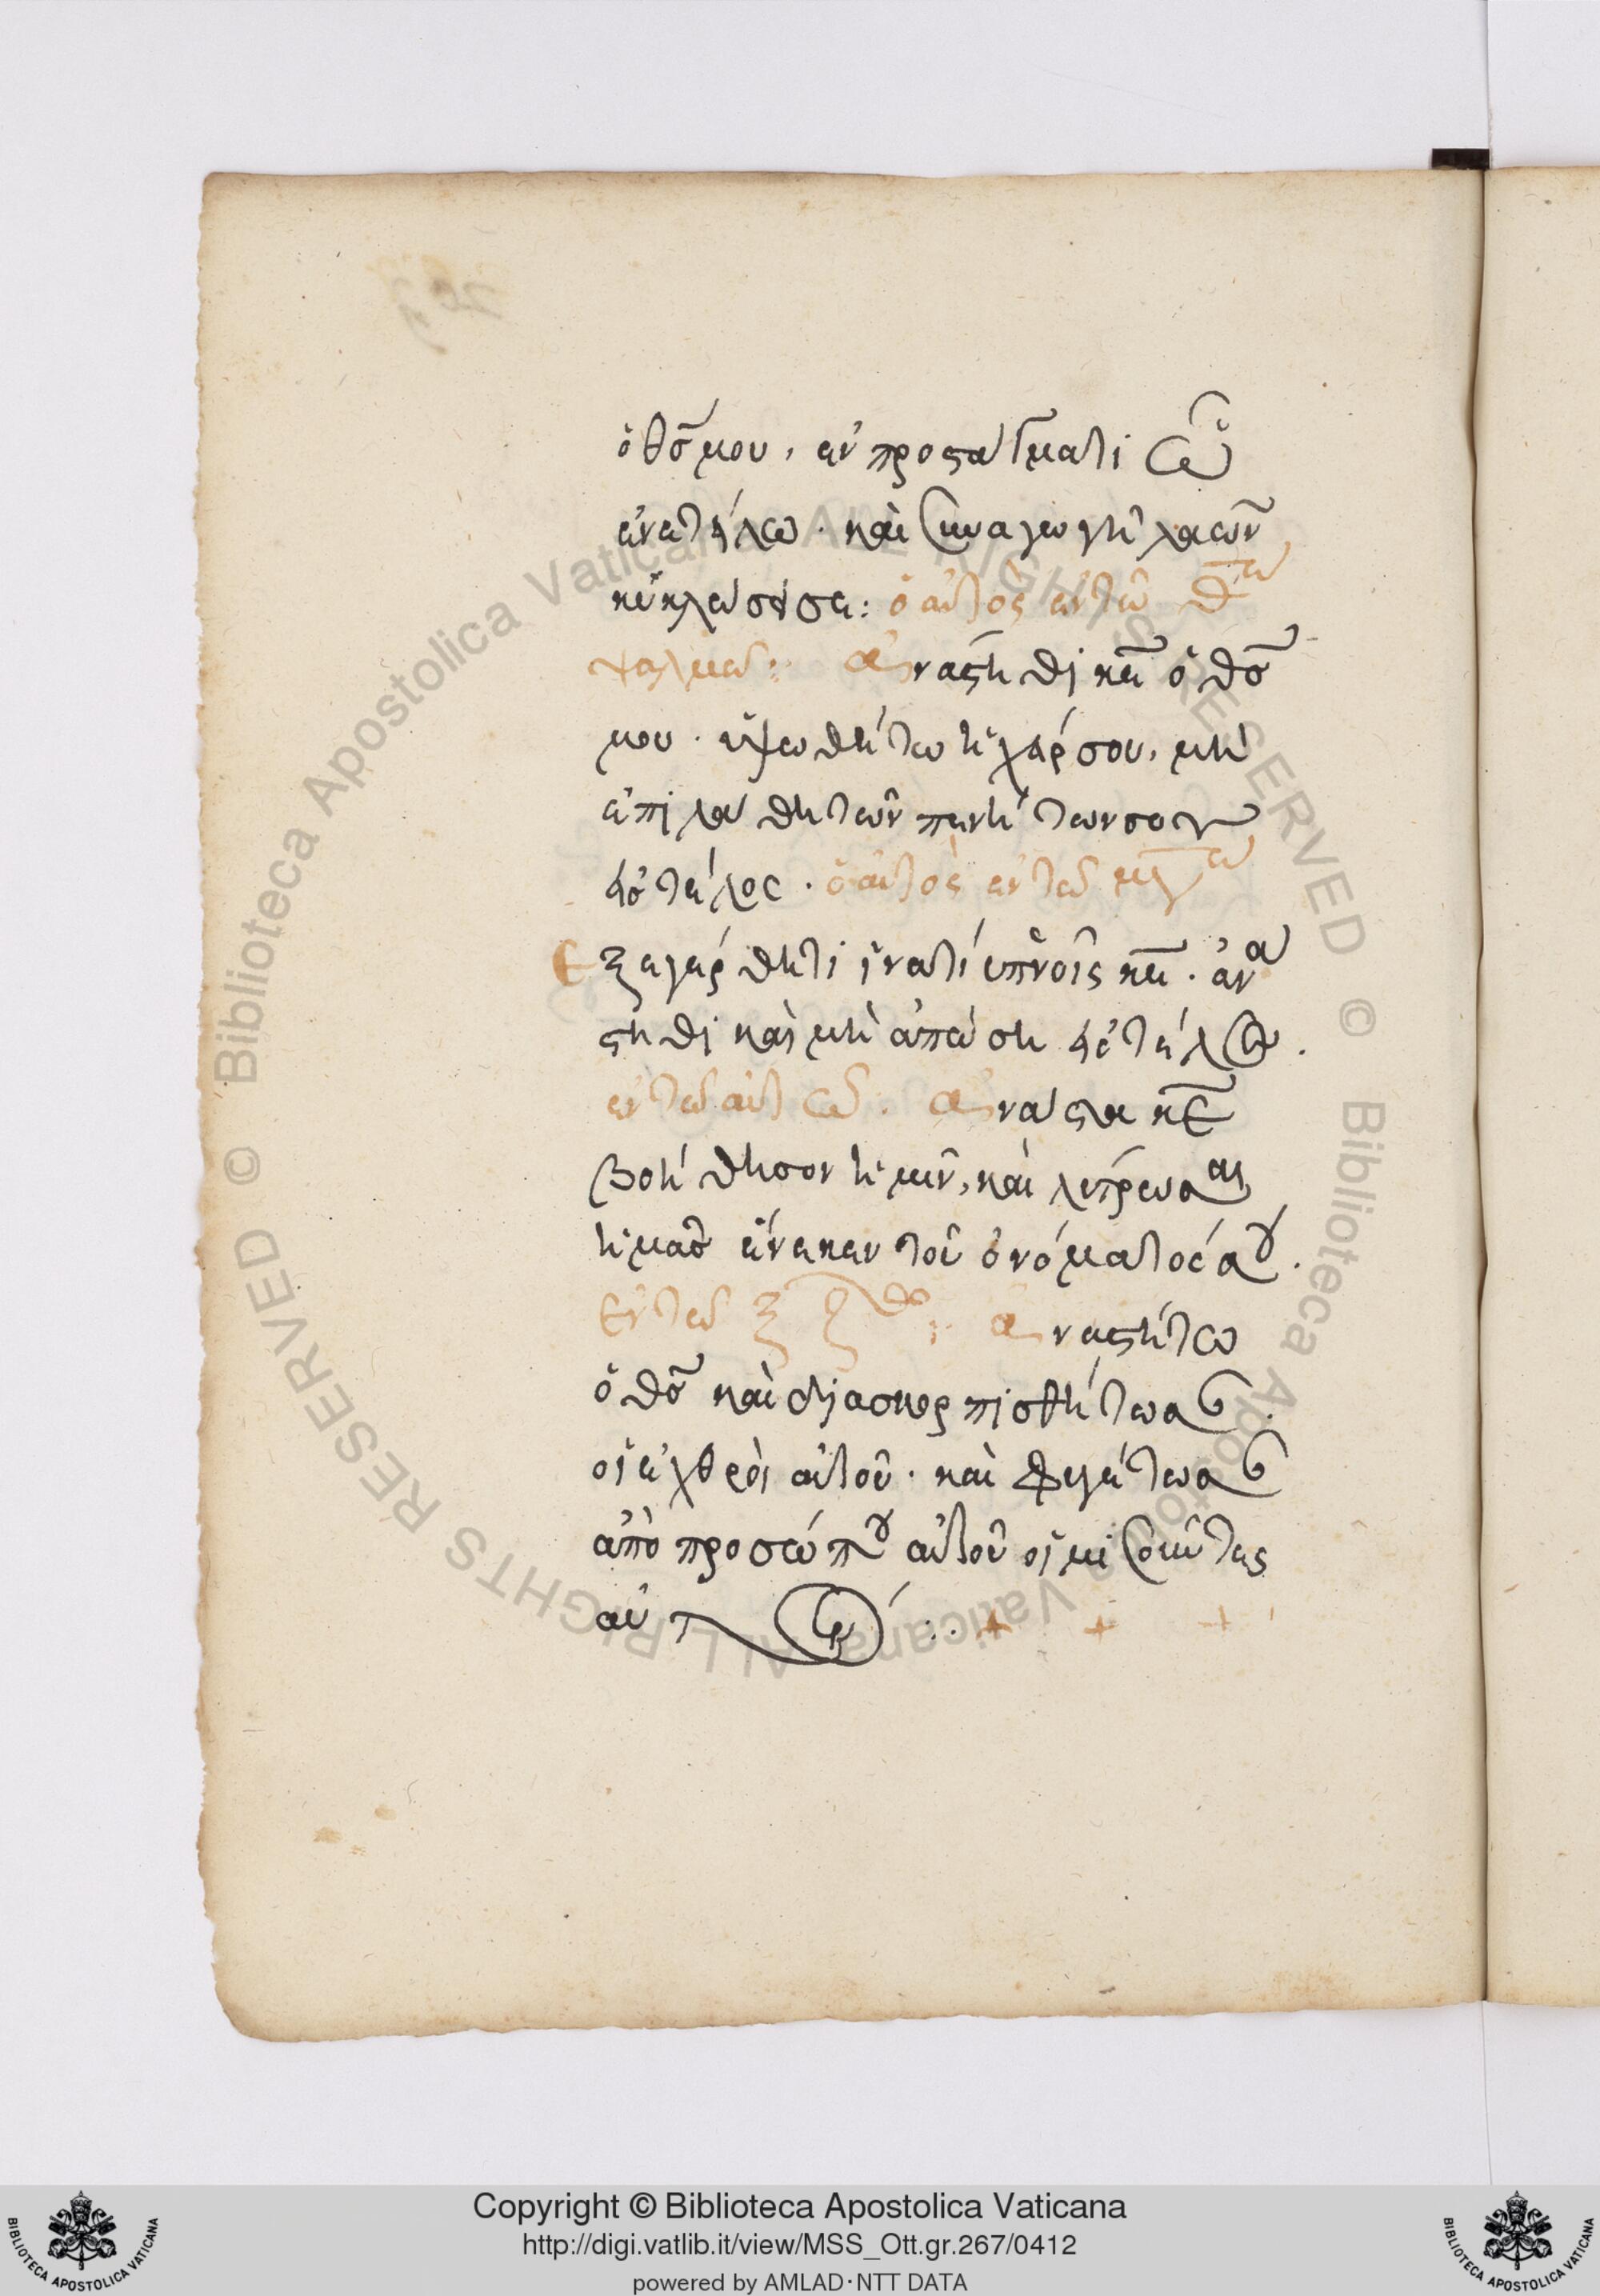 ὁ θς̄ μου, ἐν προστάγματι ᾧ
ἐνετείλω · καὶ συναγωγὴ λαῶν
κυκλώσει σε: ὁ αὐτὸς ἐν τῷ θ̄ω
ψαλμῶ: ἀνάστηθι κε̄ ὁ θς̄
μου · ὑψωθήτω ἡ χείρ σου, μὴ
ἐπιλάθη τῶν πενήτων σου
εἰς τέλος · ὁ αὐτὸς ἐν τῶ μγ̄ω
Ἐξεγέρθητι ἵνα τί ὑπνοῖς κε̄ · ἀνά
στηθι καὶ μὴ ἀπώση εἰς τέλος.
ἐν τῶ αὐτῶ. ἀνάστα κε̄
βοήθησον ἡμῖν, καὶ λύτρωσαι
ἡμᾶς ἕνεκεν τοῦ ὀνόματός σου.
Ἐν τῶ ξζ: ἀναστήτω
ὁ θς̄ καὶ διασκορπισθήτωσαν
οἱ ἐχθροὶ αὐτοῦ · καὶ φυγέτωσαν
ἀπὸ προσώπου αὐτοῦ οἱ μισοῦντες
αὐτόν : + + +
Copyright © Biblioteca Apostolica Vaticana
http://digi.vatlib.it/view/MSS_Ott.gr.267/0412
powered by AMLAD·NTT DATA
BIBLIOTECA APOSTOLICA VATICANA
BIBLIOTECA APOSTOLICA VATICANA
© Biblioteca Apostolica Vaticana ALL RIGHTS RESERVED © Biblioteca Apostolica Vaticana ALL RIGHTS RESERVED